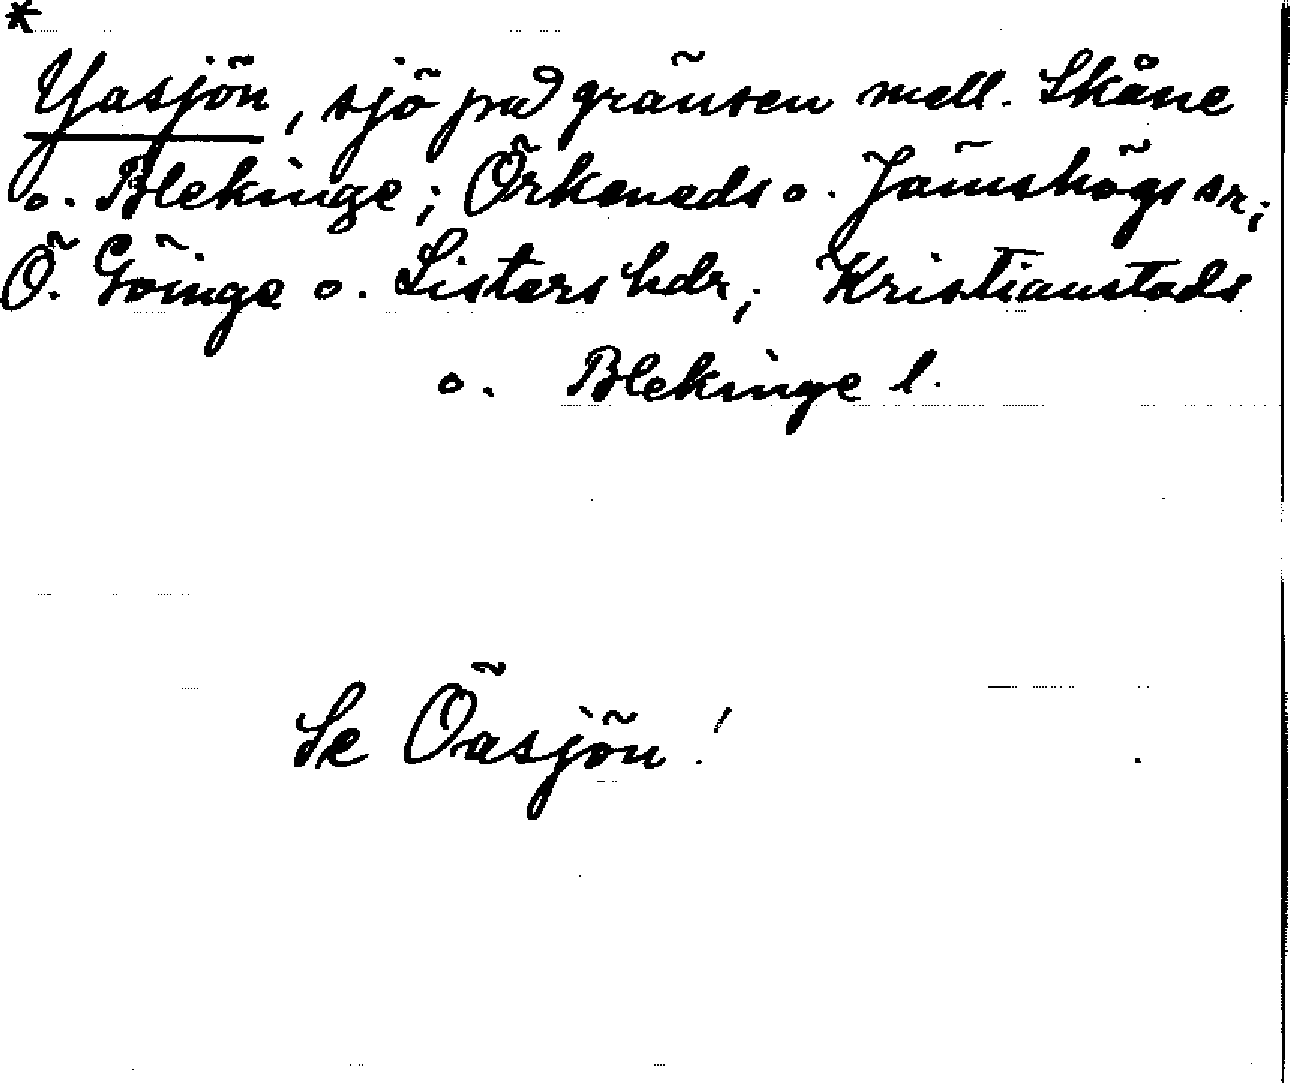 *
Yasjön, sjö på gränsen mell. Skåne
o. Blekinge; Örkeneds o. Jämshögs sr;
Ö. Göinge o. Listers hdr; Kristianstads
o. Blekinge l.
Se Öasjön!